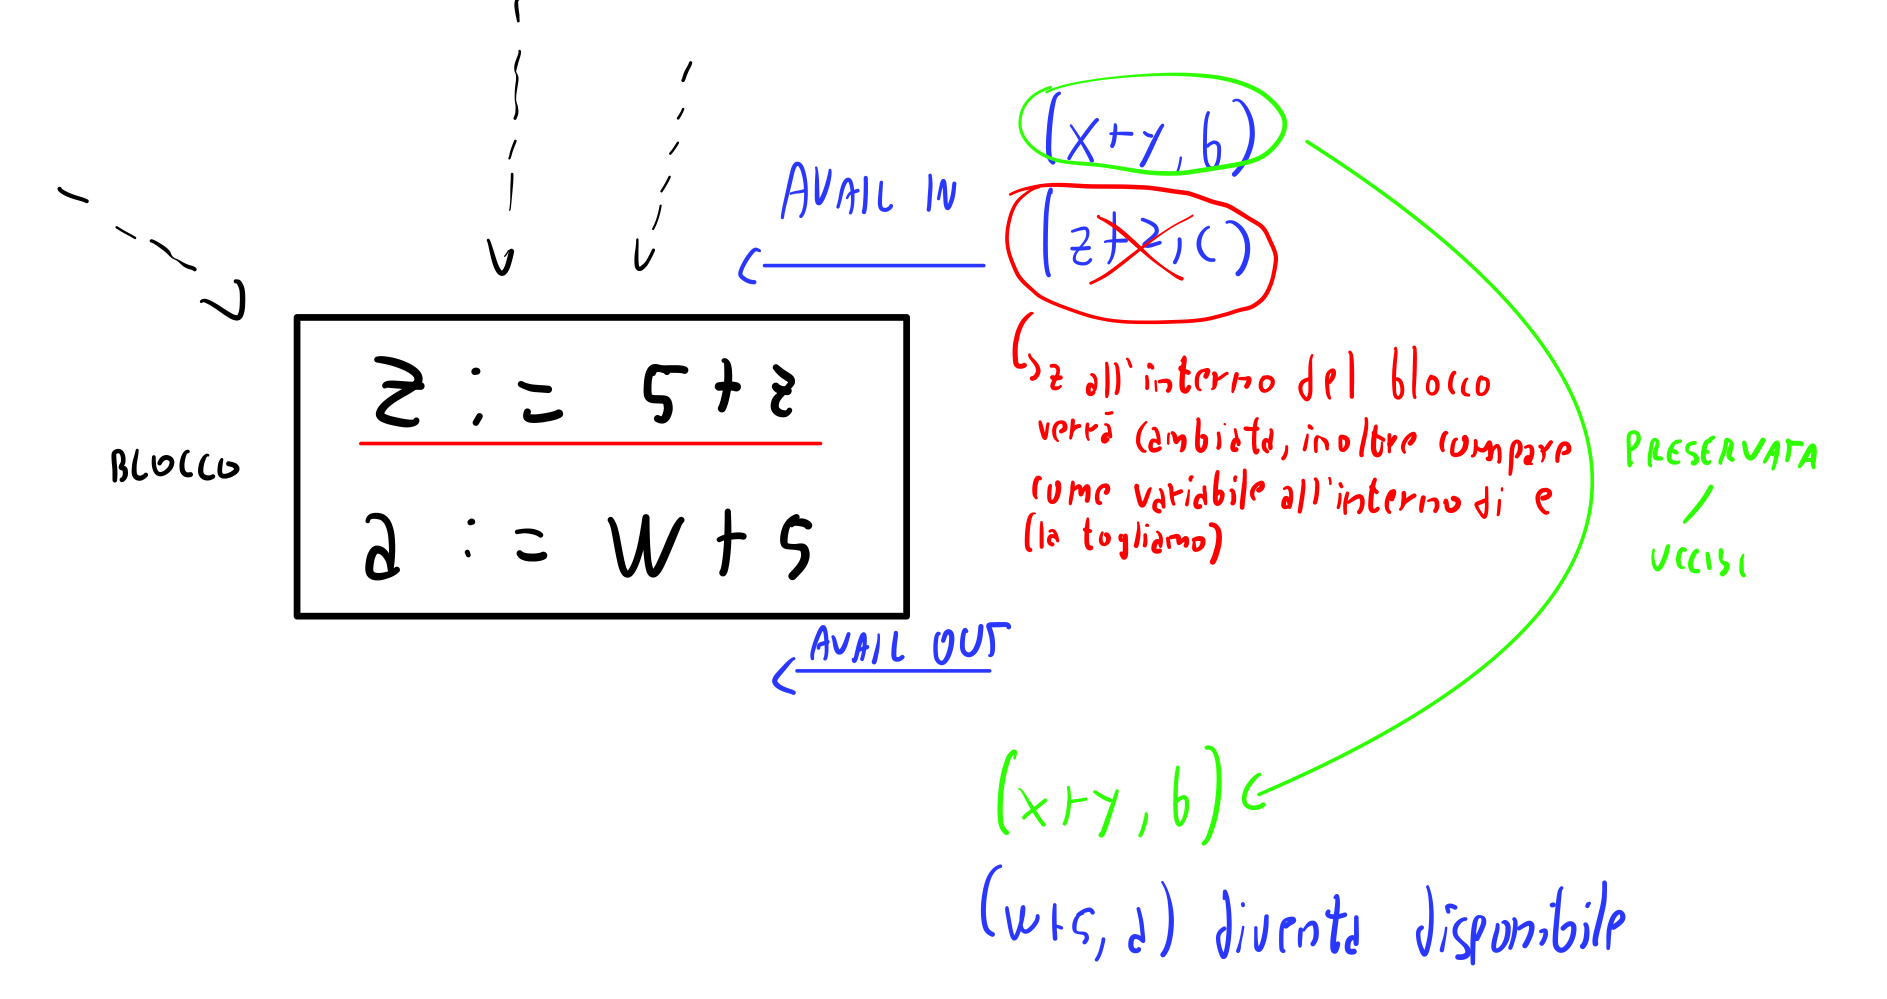 (x+y, b)
AVAIL IN
(z+z, c)
z := 5+z
z all'interno del blocco
verrà cambiata, inoltre compare
come variabile all'interno di e
(la togliamo)
BLOCCO
PRESERVATA
/
UCCISI
a := w+5
AVAIL OUT
(x+y, b)
(w+5, a) diventa disponibile